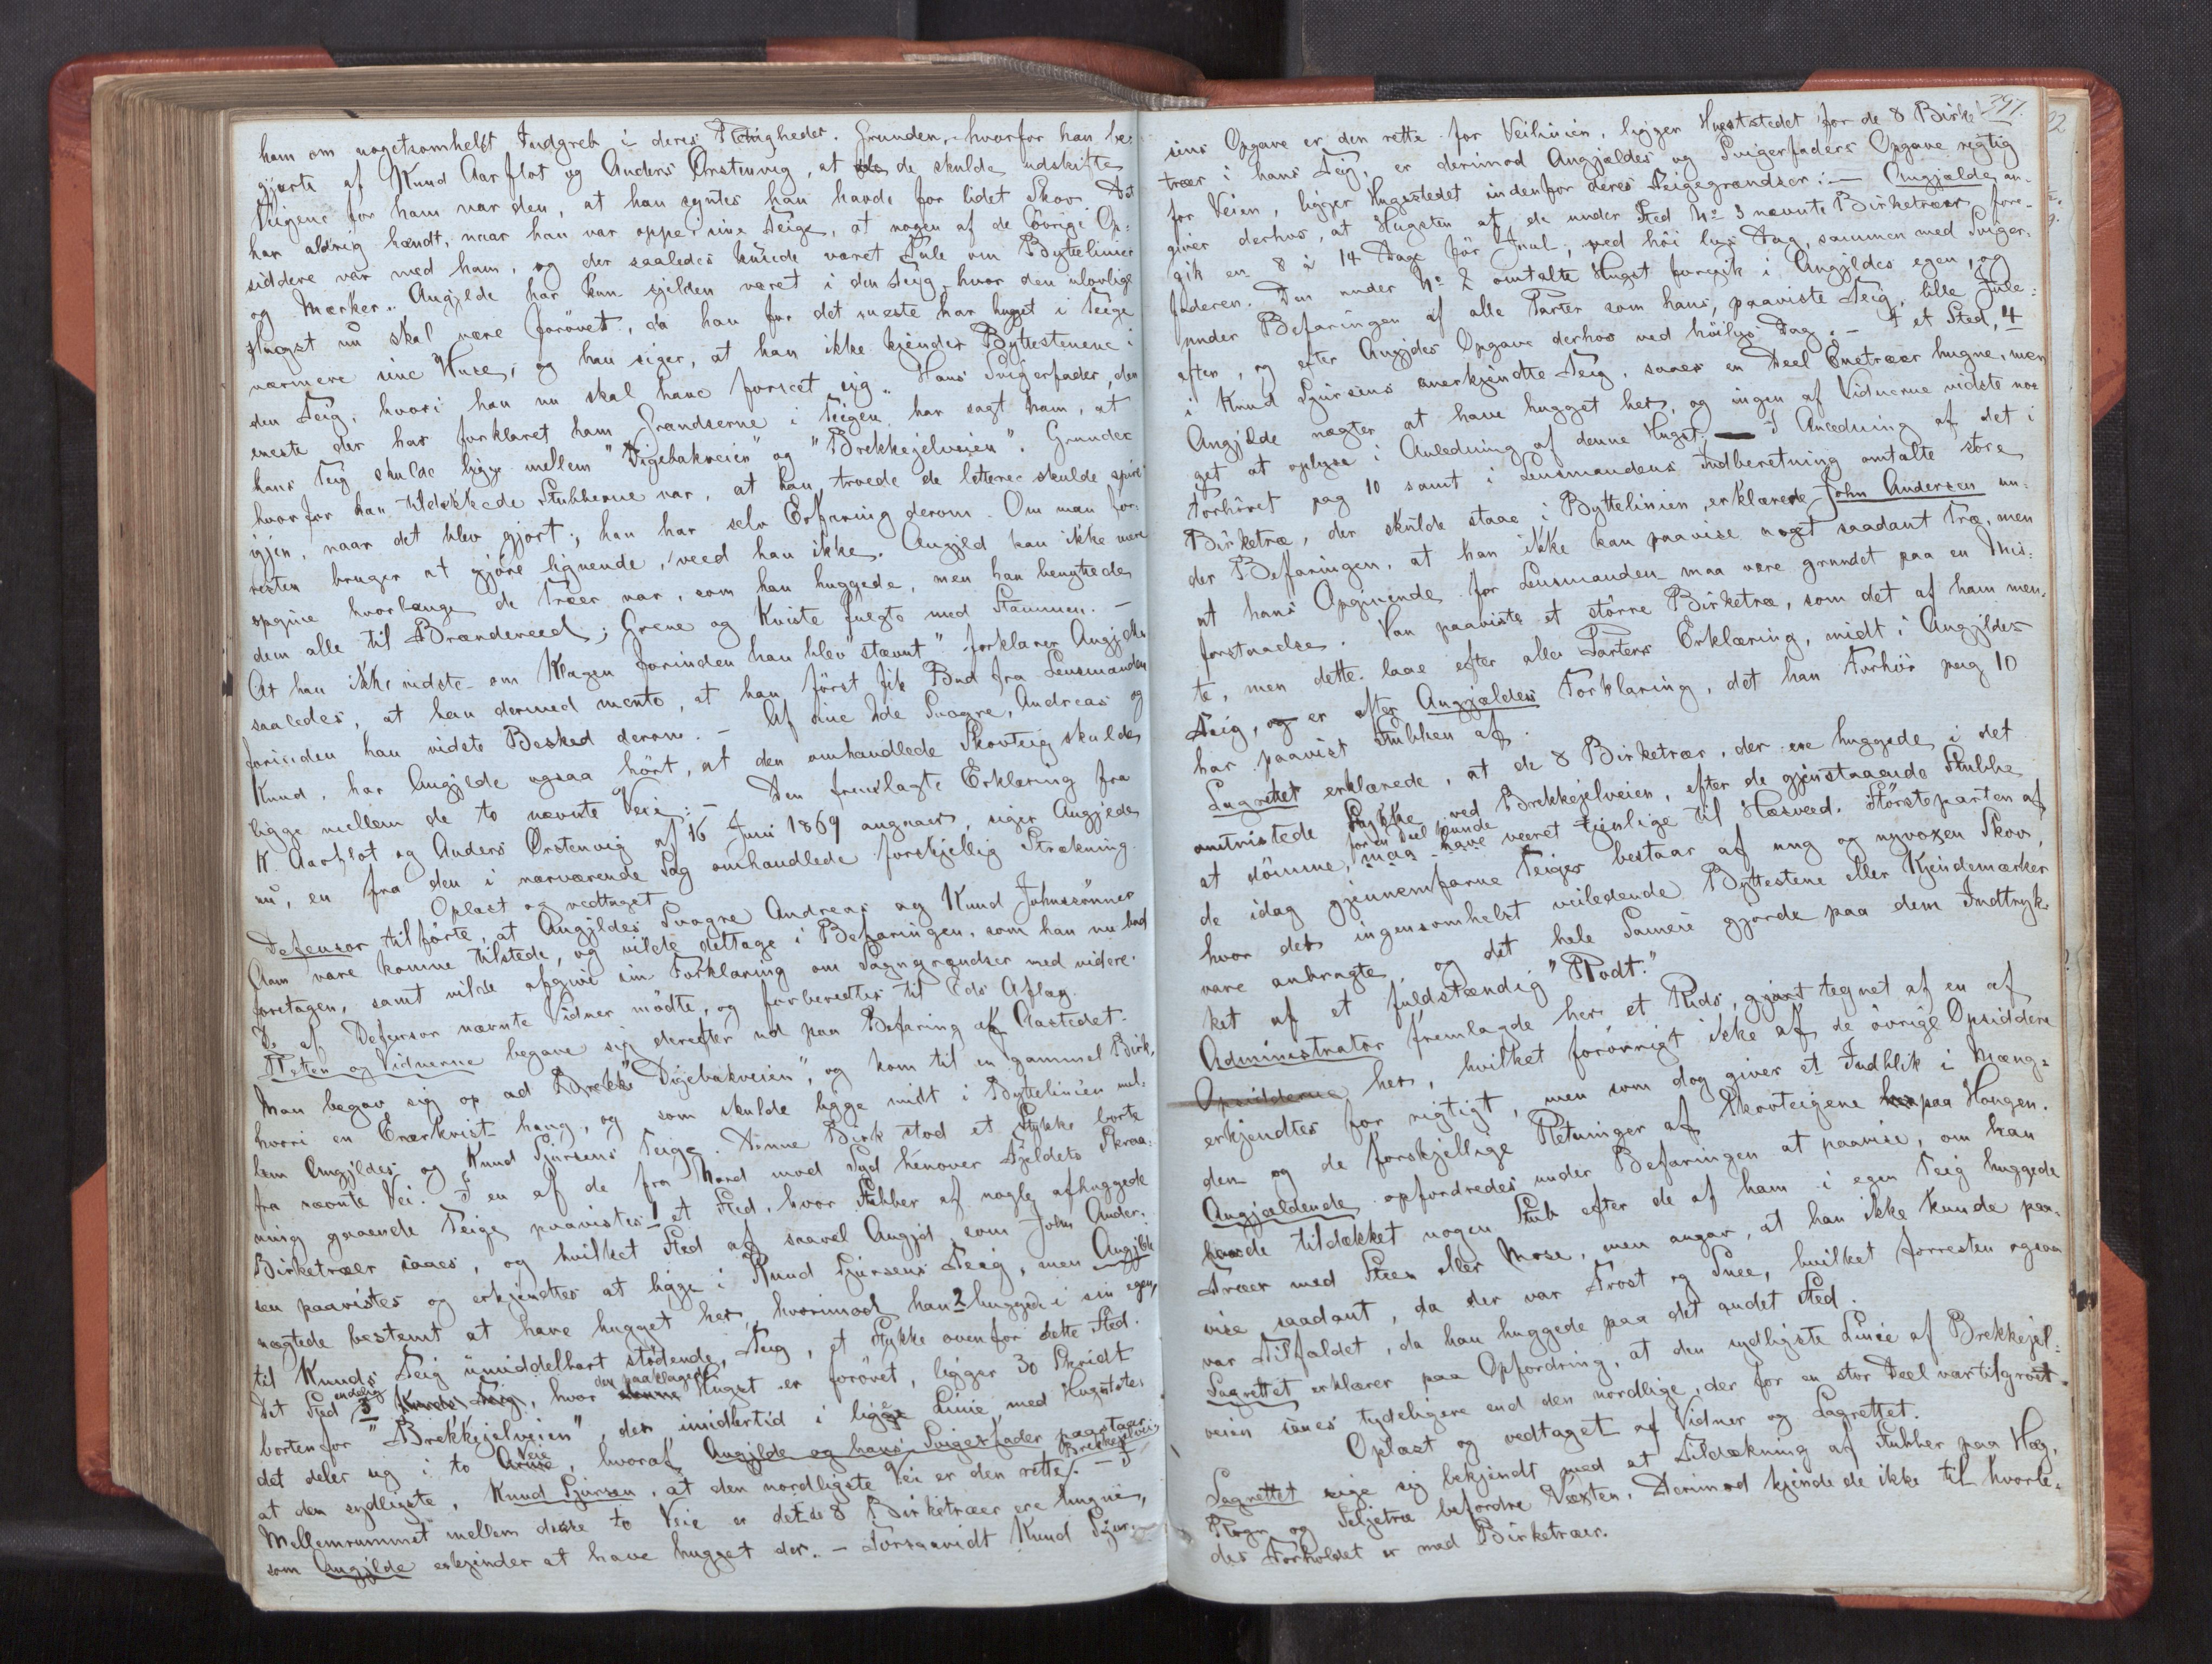 ham om nogetsomhelst Indgreb i deres Rettigheder. Grunden, hvorfor han be-
gjærte af Knud Aarflot og Anders Ørstenvig, at de skulde udskifte
Teigene for ham var den, at han syntes han havde for lidet Skov. Det
har aldrig hændt, naar han var oppe i sine Teige, at nogen af de øvrige Op-
siddere var med ham, og der saaledes kunde været Tale om Byttelinier
og Mærker. Angjelde har kun sjelden været i den Teig, hvor den ulovlige
Hugst nu skal være forøvet, da han for det meste har hugget i Teige
nærmere sine Huse, og han siger, at han ikke kjender Byttestenene i
den Teig, hvori han nu skal have forseet sig. Hans Svigerfader, den
eneste der har forklaret ham Grændserne i Teigen har sagt ham, at
hans Teig skulde ligge mellem "Digebakveien" og "Brekkejelveien". Grunden
hvorfor han tildækkede Stubberne var, at han troede de lettere skulde spire
igjen, naar det blev gjort; han har selv Erfaring derom. Om man for-
resten bruger at gjøre lignende, veed han ikke. Angjeld kan ikke være
opgive hvorlange de Træer var, som han huggede, men han benyttede
dem alle til Brændeveed; Grene og Kviste fulgte med Stammen. –
At han ikke vidste om Klagen forinden han blev "stævnt" forklarer Angjelde
saaledes, at han dermed mente, at han først fik Bud fra Lensmanden
forinden han vidste Besked derom. – Af sine 2de Svogre, Andreas og
Knud, har Angjelde ogsaa hørt, at den omhandlede Skovteig skulde
ligge mellem de to nævnte Veie: – Den fremlagte Erklæring fra
K. Aarflot og Anders Ørstenvig af 16 Juni 1869 angaaer, siger Angjelde
nu, en fra den i nærværende Sag omhandlede forskjellig Strækning.
Oplæst og vedtaget.
Defensor tilførte, at Angjeldes Svogre Andreas og Knud Johnssønner
Aam vare komne tilstede, og vilde deltage i Befaringen, som han nu bad
foretagen, samt vilde afgive sin Forklaring om Sagngrændser med videre.
De af Defensor nævnte Vidner mødte, og forberedtes til Eds Aflæg.
Retten og Vidnerne begave sig derefter ud paa Befaring af Aastedet.
Man begav sig op ad "Digebakveien", og kom til en gammel Birk,
hvori en Enerkvist hang, og som skulde ligge midt i Byttelinien mel-
lem Angjeldes og Knud Sjursens Teige. Denne Birk stod et Stykke borte
fra nævnte Vei. I en af de fra Nord mod Syd henover Fjeldets Skraa-
ning gaaende Teige paavistes 1 et Sted, hvor Stubber af nogle afhuggede
Birketræer saaes, og hvilket Sted af saavel Angjeld. som John Ander-
sen paavistes og erkjendtes at ligge i Knud Sjursens Teig, men Angjelde
nægtede bestemt at have hugget her, hvorimod han 2 huggede i sin egen,
til Knuds Teig umiddelbart stødende, Teig, et Stykke ovenfor dette Sted.
Det Sted endelig 3 Knuds Teig, hvor den paaklagede Hugst er forøvet, ligger 30 Skridt
bortenfor "Brekkejelveien", der imidlertid i lige Linie med Hugststedet
det deler sig i to Veie, hvoraf Angjelde og hans Svigerfader paastaar
at den sydligste, Knud Sjursen, at den nordligste Vei er den rette Brekkejelvei. – I
Mellemrummet mellem disse to Veie er det de 8 Birketræer ere hugne,
som Angjelde erkjender at have hugget der. – Forsaavidt Knud Sjur-
391.
sens Opgave er den rette for Veilinien, ligger Hugststedet for de 8 Birke-
trær i hans Teig, er derimod Angjældes og Svigerfaders Opgave rigtig
for Veien, ligger Hugststedet indenfor deres Teigegrændser: – Angjælde an-
giver derhos, at Hugsten af de under Sted No 3 nævnte Birketræer fore-
gik en 8 à 14 Dage før Juul, ved høi lys Dag, sammen med Sviger-
faderen. Den under No 2 omtalte Hugst foregik i Angjeldes egen, og
under Befaringen af alle Parter som hans, paaviste Teig, lille Jule-
aften, og efter Angjeldes Opgave derhos ved høilys Dag. – I et Sted, 4
i Knud Sjursens anerkjendte Teig, saaes en Deel Enetræer hugne, men
Angjelde nægter at have hugget her, og ingen af Vidnerne vidste no-
get at oplyse i Anledning af denne Hugst. — I Anledning af det i
Forhøret pag 10 samt i Lensmandens Indberetning omtalte store
Birketræ, der skulde staae i Byttelinien, erklærede John Andersen un-
der Befaringen, at han ikke kan paavise noget saadant Træ, men
at hans Opgivende for Lensmanden maa være grundet paa en Mis-
forstaaelse. Han paaviste et større Birketræ, som det af ham men-
te, men dette laae efter alle Parters Erklæring, midt i Angjeldes
Teig, og er efter Angjældes Forklaring, det han Forhør pag 10
har paavist Stubben af.
Lagrettet erklærede, at de 8 Birketrær, der ere huggede i det
omtvistede Stykke ved Brekkejelveien, efter de gjenstaaende Stubbe
at dømme, for en Deel kunde maa have været tjenlige til Hæsveed. Størsteparten af
de idag gjennemfarne Teiger bestaar af ung og nyvoxen Skov,
hvor der ingensomhelst veiledende Byttestene eller Kjendemærker
vare anbragte, og det hele Sameie gjorde paa dem Indtryk-
ket af et fuldstændig "Rodt."
Administrator fremlagde her et Rids, gjort tegnet af en af
Opsidderne her, hvilket forøvrigt ikke af de øvrige Opsiddere
erkjendtes for rigtigt, men som dog giver et Indblik i Mæng-
den og de forskjellige Retninger af Skovteigene paa Haugen.
Angjældende opfordredes under Befaringen at paavise, om han
havde tildækket nogen Stub efter de af ham i egen Teig huggede
Træer med Steen eller Mose, men angav, at han ikke kunde paa-
vise saadant, da der var Frost og Snee, hvilket forresten ogsaa
var Tilfældet, da han huggede paa det andet Sted.
Lagrettet erklærer paa Opfordring, at den sydligste Linie af Brekkejel-
veien sanes tydeligere end den nordlige, der for en stor Deel var tilgroet.
Oplæst og vedtaget af Vidner og Lagrettet.
Lagrettet sige sig bekjendt med at Tildækning af Stubber paa Hæg,
Rogn og Seljetræ befordre Væxten. Derimod kjende de ikke til hvorle-
des Forholdet er med Birketræer.